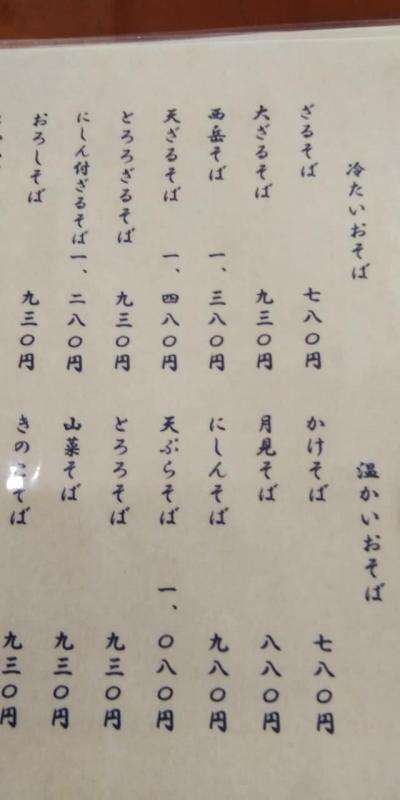 冷たいおそば
ざるそば 七八〇円
大ざるそば 九三〇円
西岳そば 一、三八〇円
天ざるそば 一、四八〇円
とろろざるそば 九三〇円
にしん付ざるそば 一、二八〇円
おろしそば 九三〇円
温かいおそば
かけそば 七八〇円
月見そば 八八〇円
にしんそば 九八〇円
天ぷらそば 一、〇八〇円
とろろそば 九三〇円
山菜そば 九三〇円
きのこそば 九三〇円